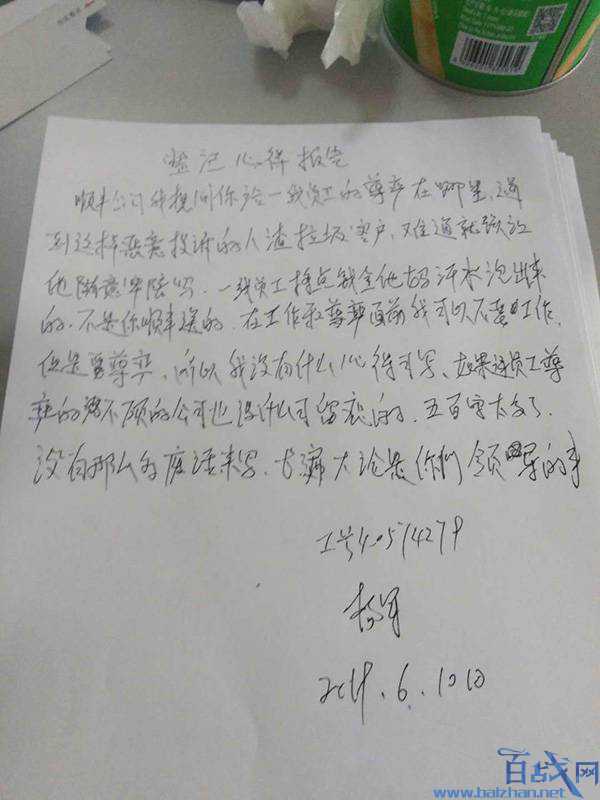 登记心得报告
顺丰公司我想问你给一线员工的尊严在哪里,遇
到这种恶意投诉的人渣垃圾客户,难道就该让
他随意牟陪吗.一线员工挣点钱全他妈汗水泡出来
的.不是你顺丰送的.在工作和尊严面前我可以不要工作.
但是要尊严.所以我没有什么心得可写.如果连员工尊
严的都不顾的公司也没什么可留恋的.五百字太多了.
没有那么多废话来写.长篇大论是你们领导的事
工号40574279
杨军
6.10日
百战网
www.baizhan.net